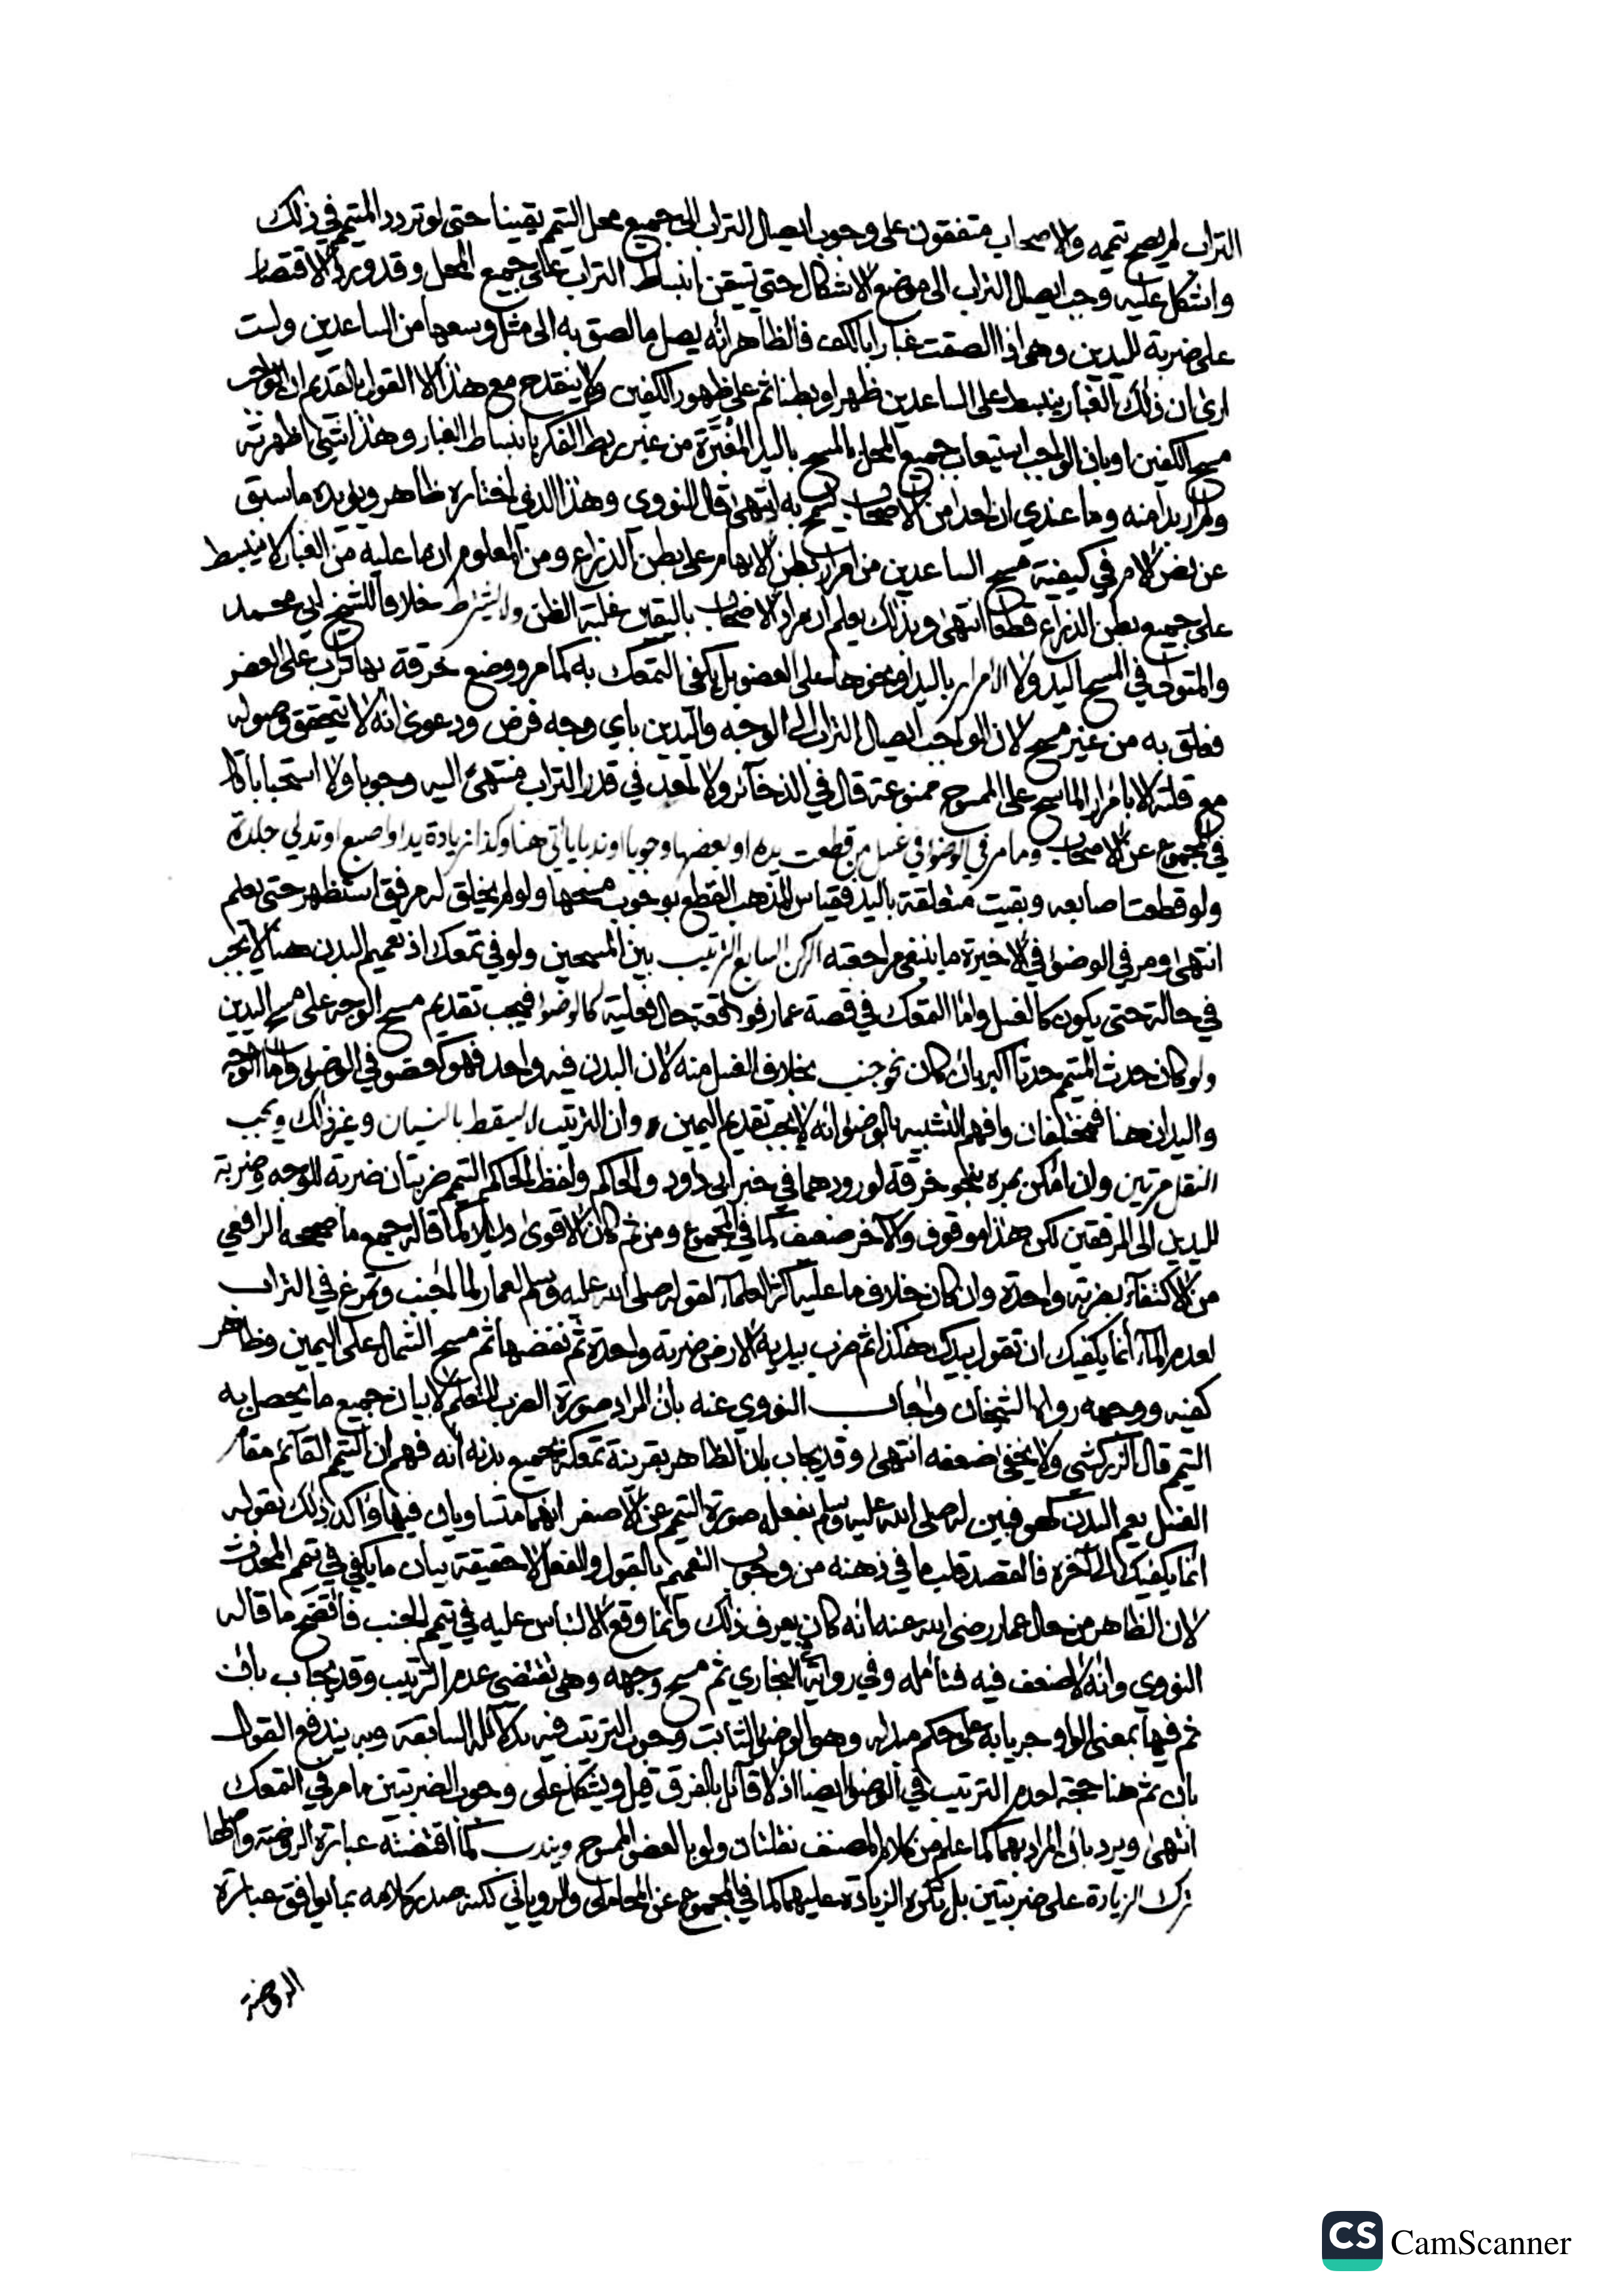 التراب لم يصح تيممه والاصحاب متفقون على وجوب ايصال التراب الى جميع محل التيمم يقينا حتى لو تردد المتيمم في ذلك
واشكل عليه وجب ايصال التراب الى موضع الاشكال حتى تتيقن انبساط التراب على جميع المحل وقد ورد الاقتصار
على ضربة لليدين وهي اذا الصقت غبارا بالكف فالظاهر انه يصل ما لصق به الى مثل وسعها من الساعدين ولست
ارى ان ذلك الغبار ينبسط على الساعدين ظهرا وبطنا ثم على ظهور الكفين ولا ينقدح مع هذا الا القول القديم ان الواجب
مسح الكفين او بان الواجب استيعاب جميع المحل بالمسح باليد المغبرة من غير ربط الفكر بانبساط الغبار وهذا شيء اظهرته
ولم ار بدا منه وما عندي ان احدا من الاصحاب يسمح به انتهى قال النووي وهذا الذي اختاره ظاهر ويؤيده ما سبق
عن نص الام في كيفية مسح الساعدين من امرار بطن الابهام على بطن الذراع ومن المعلوم ان ما عليه من الغبار لا ينبسط
على جميع بطن الذراع قطعا انتهى وبذلك يعلم ان مراد الاصحاب باليقين غلبة الظن ولا يشترط خلافا للشيخ ابي محمد
والمتولي في المسح اليد ولا الامرار باليد او نحوها على العضو بل يكفي التمعك به كما مر ووضع خرقة بها تراب على العضو
فعلق به من غير مسح لان الواجب ايصال التراب الى الوجه واليدين باي وجه فرض ودعوى انه لا يتحقق وصوله
مع قلته الا بامرار الماسح على الممسوح ممنوعة قال في الذخائر ولا نعد في قدر التراب منتهى اليه وجوبا ولا استحبابا كما
في المجموع عن الاصحاب وما مر في الوضوء في غسل من قطعت يده او بعضها وجوبا او ندبا ياتي هنا وكذا زيادة يد او اصبع او تدلي جلدة
ولو قطعت اصابعه وبقيت متعلقة باليد فقياس المذهب القطع بوجوب مسحها ولو لم يخلق له مرفق استظهر حتى يعلم
انتهى ومر في الوضوء في الاخيرة ما ينبغي مراجعته الركن السابع الترتيب بين المسحين ولو في تمعك اذ تعميم البدن هنا لا يجب
في حالة حتى يكون كالغسل واما التمعك في قصة عمار فواقعة حال فعلية كالوضوء فيجب تقديم مسح الوجه على مسح اليدين
ولو كان حدث المتيمم حدثا اكبر بان كان نحو جنب بخلاف الغسل منه لان البدن فيه واحد فهو كعضو في الوضوء واما الوجه
واليدان هنا فمختلفان وافهم التشبيه بالوضوء انه لا يجب تقديم اليمين وان الترتيب لا يسقط بالنسيان وغير ذلك ويجب
النقل مرتين وان امكن بمرة بنحو خرقة لورودهما في خبر ابي داود والحاكم ولفظ الحاكم التيمم ضربتان ضربة للوجه وضربة
لليدين الى المرفقين لكن هذا موقوف والاخر ضعيف كما في المجموع ومن ثم كان الاقوى دليلا كما قاله جمع ما صححه الرافعي
من الاكتفاء بضربة واحدة وان كان خلاف ما عليه اكثر العلماء لقوله صلى الله عليه وسلم لعمار لما اجنب وتمرغ في التراب
لعدم الماء انما يكفيك ان تقول بيديك هكذا ثم ضرب بيديه الارض ضربة واحدة ثم نفضها ثم مسح الشمال على اليمين وظاهر
كفيه ووجهه رواه الشيخان واجاب النووي عنه بان المراد صورة الضرب للتعليم لا بيان جميع ما يحصل به
التيمم قال الزركشي ولا يخفى ضعفه انتهى وقد يجاب بان الظاهر بقرينة تمعكه بجميع بدنه انه فهم ان التيمم القائم مقام
الغسل يعم البدن كهو فبين له صلى الله عليه وسلم بفعله صورة التيمم عن الاصغر انهما متساويان فيها واكد ذلك بقوله
انما يكفيك الى اخره فالقصد قلب ما في ذهنه من وجوب التعميم بالقول والفعل لا حقيقة بيان ما يكفي في تيمم المحدث
لان الظاهر من حال عمار رضي الله عنه انه كان يعرف ذلك وانما وقع الالتباس عليه في تيمم الجنب فاتضح ما قاله
النووي وانه لا ضعف فيه فتامله وفي رواية البخاري ثم مسح وجهه وهي تقتضي عدم الترتيب وقد يجاب بان
ثم فيها بمعنى الواو جريا به على حكم مبدله وهو الوضوء الثابت وجوب الترتيب فيه بدلائله السابقة وبه يندفع القول
بان ثم هنا حجة لعدم الترتيب في الوضوء ايضا اذ لا قائل بالفرق قيل ويشكل على وجوب الضربتين ما مر في التمعك
انتهى ويرد بان المراد بهما كما علم من كلام المصنف نقلتان ولو بالعضو الممسوح ويندب كما اقتضته عبارة الروضة واصلها
ترك الزيادة على ضربتين بل تكره الزيادة عليهما كما في المجموع عن المحاملي والروياني لكنه صدر كلامه بما يوافق عبارة
الروضة
CS CamScanner